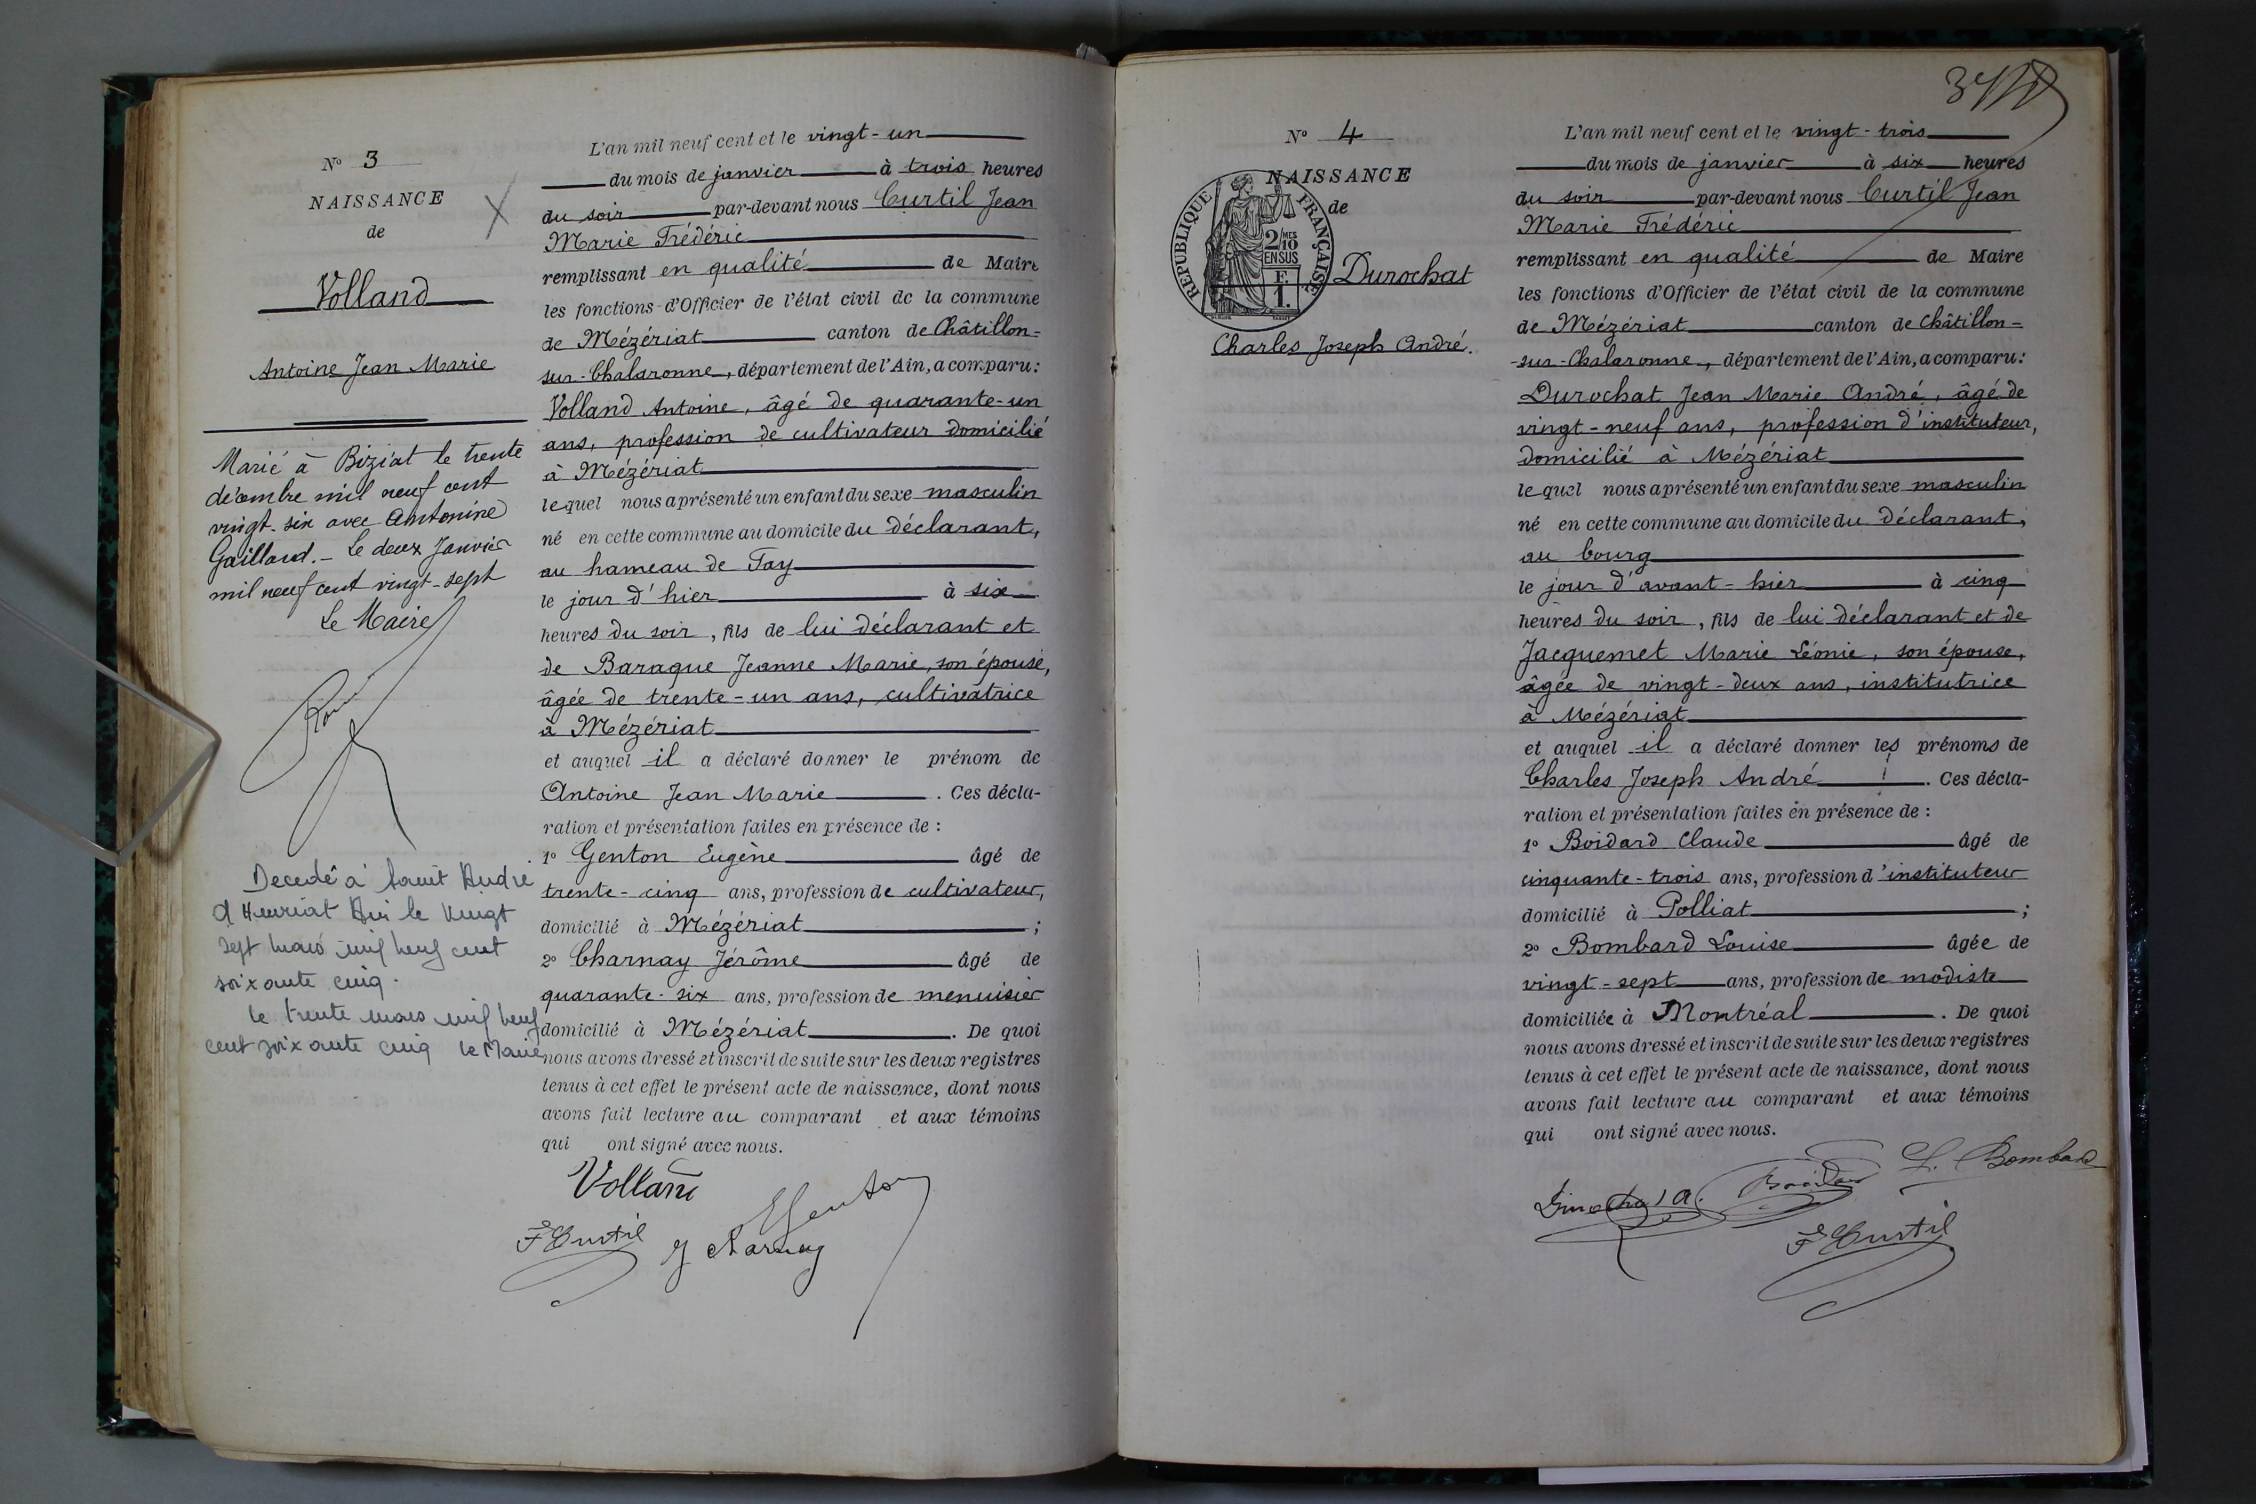 N° 3
NAISSANCE
de
Volland
Antoine Jean Marie
Marié à Biziat le trente
décembre mil neuf cent
vingt-six avec Antonine
Gaillard.- Le deux Janvier
mil neuf cent vingt-sept
Le Maire
Decedé à Saint André
d'Huiriat Ain le vingt
sept mars mil neuf cent
soixante cinq.
le trente mars mil neuf
cent soixante cinq le Maire
L'an mil neuf cent et le vingt-un
du mois de janvier à trois heures
du soir par-devant nous Curtil Jean
Marie Frédéric
remplissant en qualité de Maire
les fonctions d'Officier de l'état civil de la commune
de Mézériat canton de Châtillon-
sur-Chalaronne, département de l'Ain, a comparu:
Volland Antoine, âgé de quarante-un
ans, profession de cultivateur domicilié
à Mézériat
lequel nous a présenté un enfant du sexe masculin
né en cette commune au domicile du déclarant,
au hameau de Tay
le jour d'hier à six
heures du soir, fils de lui déclarant et
de Baraque Jeanne Marie, son épouse,
âgée de trente-un ans, cultivatrice
à Mézériat
et auquel il a déclaré donner le prénom de
Antoine Jean Marie. Ces décla-
ration et présentation faites en présence de :
1° Genton Eugène âgé de
trente-cinq ans, profession de cultivateur,
domicilié à Mézériat ;
2° Charnay Jérôme âgé de
quarante-six ans, profession de menuisier
domicilié à Mézériat. De quoi
nous avons dressé et inscrit de suite sur les deux registres
tenus à cet effet le présent acte de naissance, dont nous
avons fait lecture au comparant et aux témoins
qui ont signé avec nous.
Volland
EGenton
F Curtil
J Charnay
N° 4
NAISSANCE
de
RÉPUBLIQUE FRANÇAISE
2/10 MES
EN SUS
F.
1.
Durochat
Charles Joseph André.
L'an mil neuf cent et le vingt-trois
du mois de janvier à six heures
du soir par-devant nous Curtil Jean
Marie Frédéric
remplissant en qualité de Maire
les fonctions d'Officier de l'état civil de la commune
de Mézériat canton de Châtillon-
-sur-Chalaronne, département de l'Ain, a comparu:
Durochat Jean Marie André, âgé de
vingt-neuf ans, profession d'instituteur,
domicilié à Mézériat
lequel nous a présenté un enfant du sexe masculin
né en cette commune au domicile du déclarant,
au bourg
le jour d'avant-hier à cinq
heures du soir, fils de lui déclarant et de
Jacquemet Marie Léonie, son épouse,
âgée de vingt-deux ans, institutrice
à Mézériat
et auquel il a déclaré donner les prénoms de
Charles Joseph André. Ces décla-
ration et présentation faites en présence de :
1° Boidard Claude âgé de
cinquante-trois ans, profession d'instituteur
domicilié à Polliat ;
2° Bombard Louise âgée de
vingt-sept ans, profession de modiste
domiciliée à Montréal. De quoi
nous avons dressé et inscrit de suite sur les deux registres
tenus à cet effet le présent acte de naissance, dont nous
avons fait lecture au comparant et aux témoins
qui ont signé avec nous.
L. Bombard
Durochat A.
Boidard
F Curtil